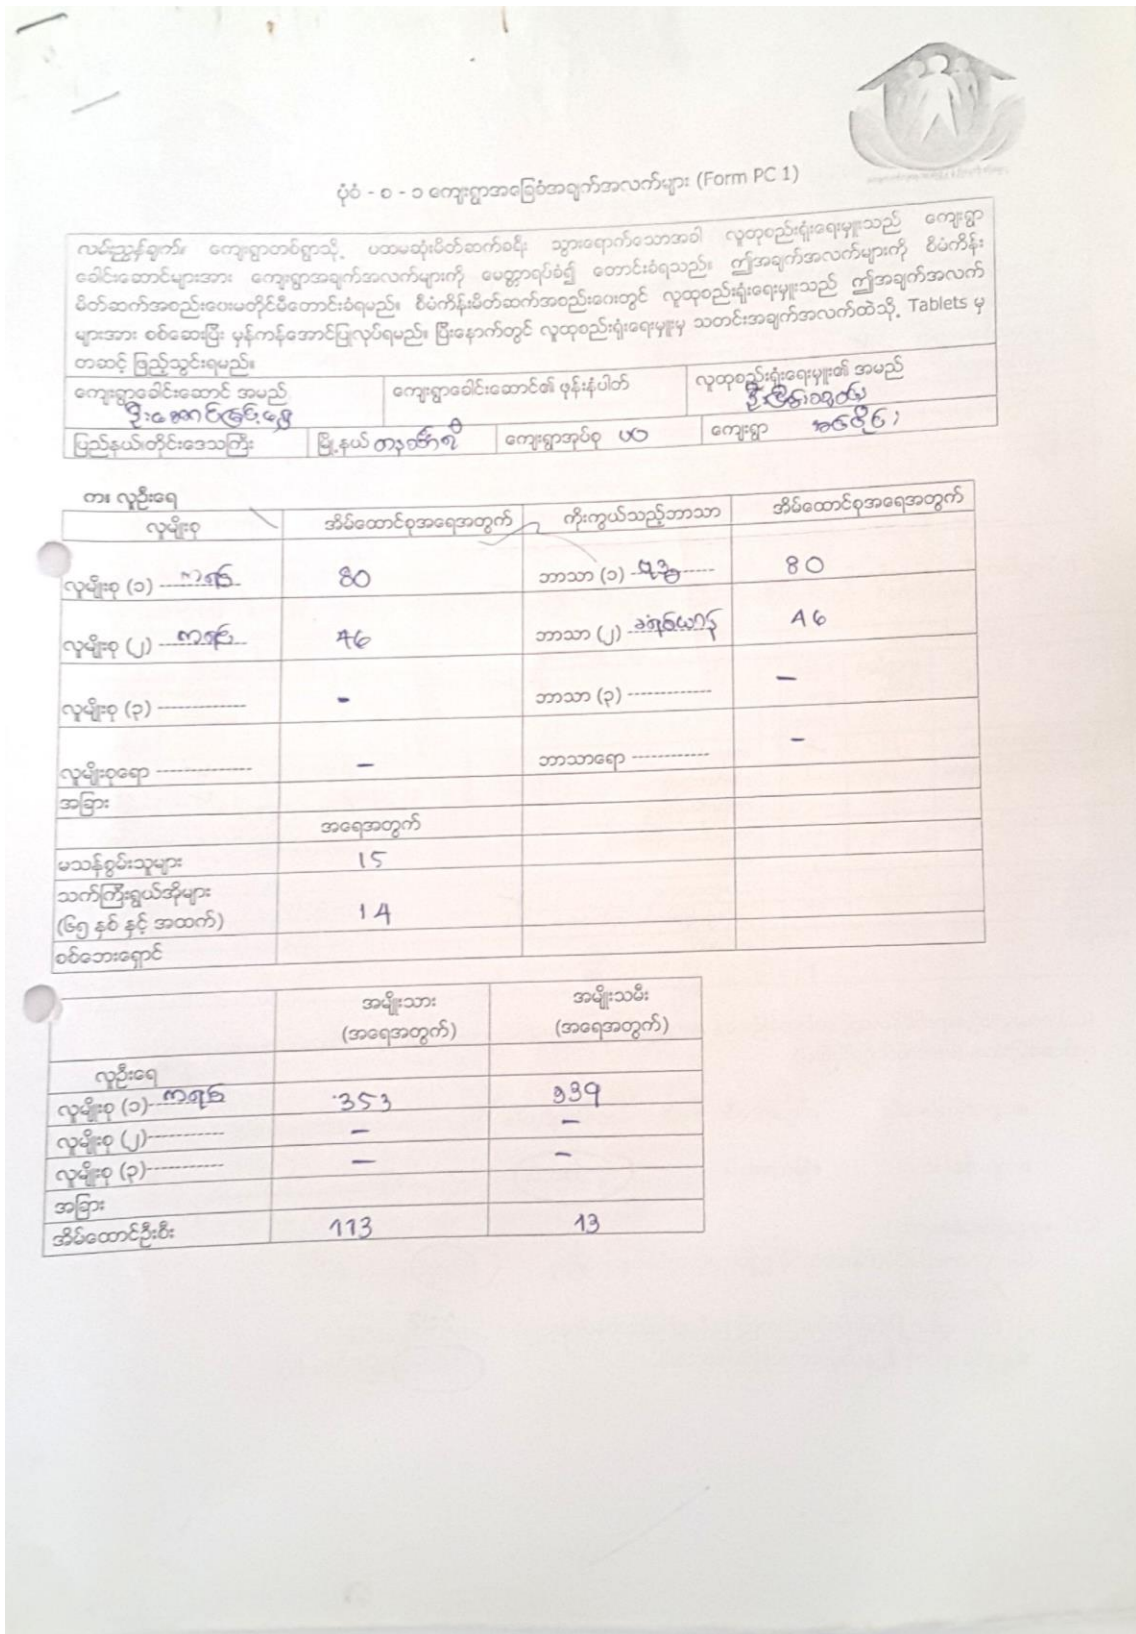 ပုံစံ - စ - ၁ ကျေးရွာအခြေခံအချက်အလက်များ (Form PC 1)
လမ်းညွှန်ချက်။ ကျေးရွာတစ်ရွာသို့ ပထမဆုံးမိတ်ဆက်ခရီး သွားရောက်သောအခါ လူထုစည်းရုံးရေးမှူးသည် ကျေးရွာ
ခေါင်းဆောင်များအား ကျေးရွာအချက်အလက်များကို မေတ္တာရပ်ခံ၍ တောင်းခံရသည်။ ဤအချက်အလက်များကို စီမံကိန်း
မိတ်ဆက်အစည်းဝေးမတိုင်မီတောင်းခံရမည်။ စီမံကိန်းမိတ်ဆက်အစည်းဝေးတွင် လူထုစည်းရုံးရေးမှူးသည် ဤအချက်အလက်
များအား စစ်ဆေးပြီး မှန်ကန်အောင်ပြုလုပ်ရမည်။ ပြီးနောက်တွင် လူထုစည်းရုံးရေးမှူးမှ သတင်းအချက်အလက်ထဲသို့ Tablets မှ
တဆင့် ဖြည့်သွင်းရမည်။
ကျေးရွာခေါင်းဆောင် အမည် ကျေးရွာခေါင်းဆောင်၏ ဖုန်းနံပါတ် လူထုစည်းရုံးရေးမှူး၏ အမည်
ပြည်နယ်/တိုင်းဒေသကြီး မြို့နယ် တနင်္သာရီ ကျေးရွာအုပ်စု ပဝ ကျေးရွာ
က။ လူဦးရေ
လူမျိုးစု အိမ်ထောင်စုအရေအတွက် ကိုးကွယ်သည့်ဘာသာ အိမ်ထောင်စုအရေအတွက်
လူမျိုးစု (၁) ကရင် 80 ဘာသာ (၁) ဗုဒ္ဓ 80
လူမျိုးစု (၂) ကရင် 46 ဘာသာ (၂) ခရစ်ယာန် 46
လူမျိုးစု (၃) ------------- - ဘာသာ (၃) ------------- -
လူမျိုးစုရော -------------- - ဘာသာရော ------------ -
အခြား
အရေအတွက်
မသန်စွမ်းသူများ 15
သက်ကြီးရွယ်အိုများ
(၆၅ နှစ် နှင့် အထက်) 14
စစ်ဘေးရှောင်
အမျိုးသား အမျိုးသမီး
(အရေအတွက်) (အရေအတွက်)
လူဦးရေ
လူမျိုးစု (၁) ကရင် 353 339
လူမျိုးစု (၂)------------ - -
လူမျိုးစု (၃)------------ - -
အခြား
အိမ်ထောင်ဦးစီး 113 13